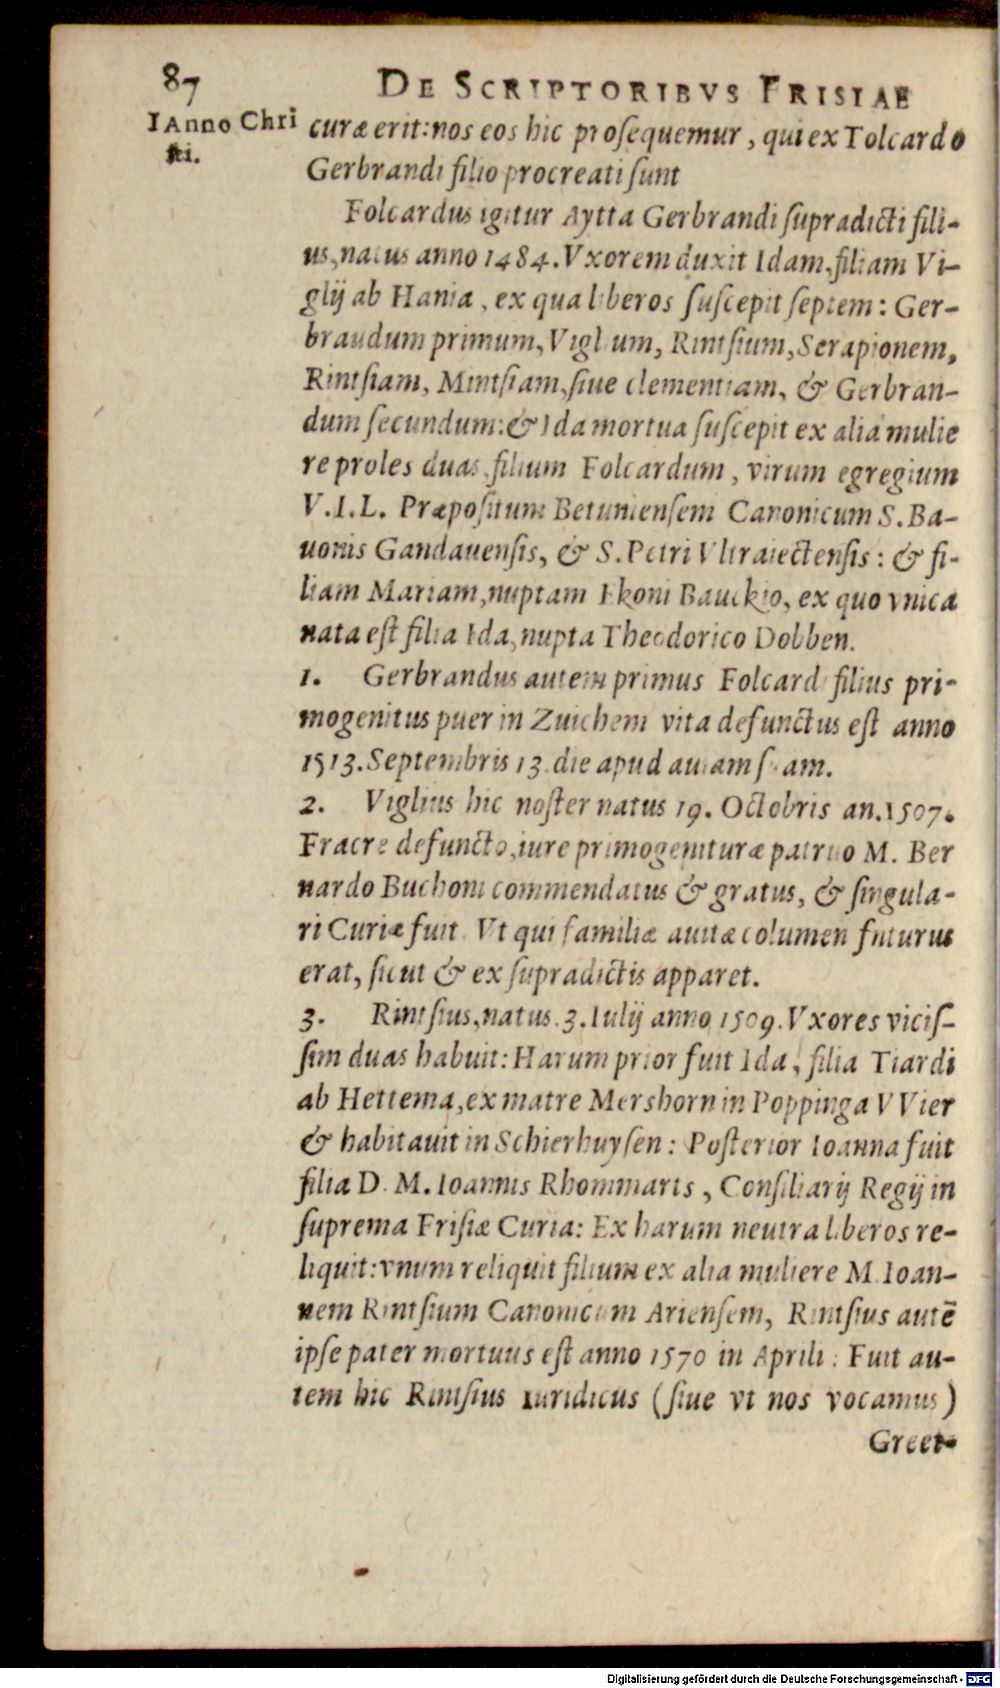 87
DE SCRIPTORIBVS FRISIAE
IAnno Chri
sti.
curæ erit: nos eos hic prosequemur, qui ex Tolcardo
Gerbrandi filio procreati sunt
Folcardus igitur Aytta Gerbrandi supradicti fili-
us, natus anno 1484. Vxorem duxit Idam, filiam Vi-
glij ab Hania, ex qua liberos suscepit septem: Ger-
braudum primum, Viglium, Rintsium, Serapionem,
Rintsiam, Mintsiam, siue clementiam, & Gerbran-
dum secundum: & Ida mortua suscepit ex alia mulie
re proles duas, filium Folcardum, virum egregium
V.I.L. Præpositum Betuniensem Canonicum S. Ba-
uonis Gandauensis, & S. Petri Vltraiectensis: & fi-
liam Mariam, nuptam Ekoni Bauckio, ex quo vnica
nata est filia Ida, nupta Theodorico Dobben.
1. Gerbrandus autem primus Folcardi filius pri-
mogenitus puer in Zuichem vita defunctus est anno
1513. Septembris 13. die apud auiam suam.
2. Viglius hic noster natus 19. Octobris an. 1507.
Fracre defuncto, iure primogenituræ patruo M. Ber
nardo Buchoni commendatus & gratus, & singula-
ri Curiæ fuit. Vt qui familiæ auitæ columen fnturus
erat, sicut & ex supradictis apparet.
3. Rintsius, natus. 3. Iulij anno 1509. Vxores vicis-
sim duas habuit: Harum prior fuit Ida, filia Tiardi
ab Hettema, ex matre Mershorn in Poppinga VVier
& habitauit in Schierhuysen: Posterior Ioanna fuit
filia D. M. Ioannis Rhommarts, Consiliarij Regij in
suprema Frisiæ Curia: Ex harum neutra liberos re-
liquit: vnum reliquit filium ex alia muliere M. Ioan-
nem Rintsium Canonicum Ariensem, Rintsius autē
ipse pater mortuus est anno 1570 in Aprili: Fuit au-
tem hic Rintsius Iuridicus (siue vt nos vocamus)
Greet-
Digitalisierung gefördert durch die Deutsche Forschungsgemeinschaft - DFG